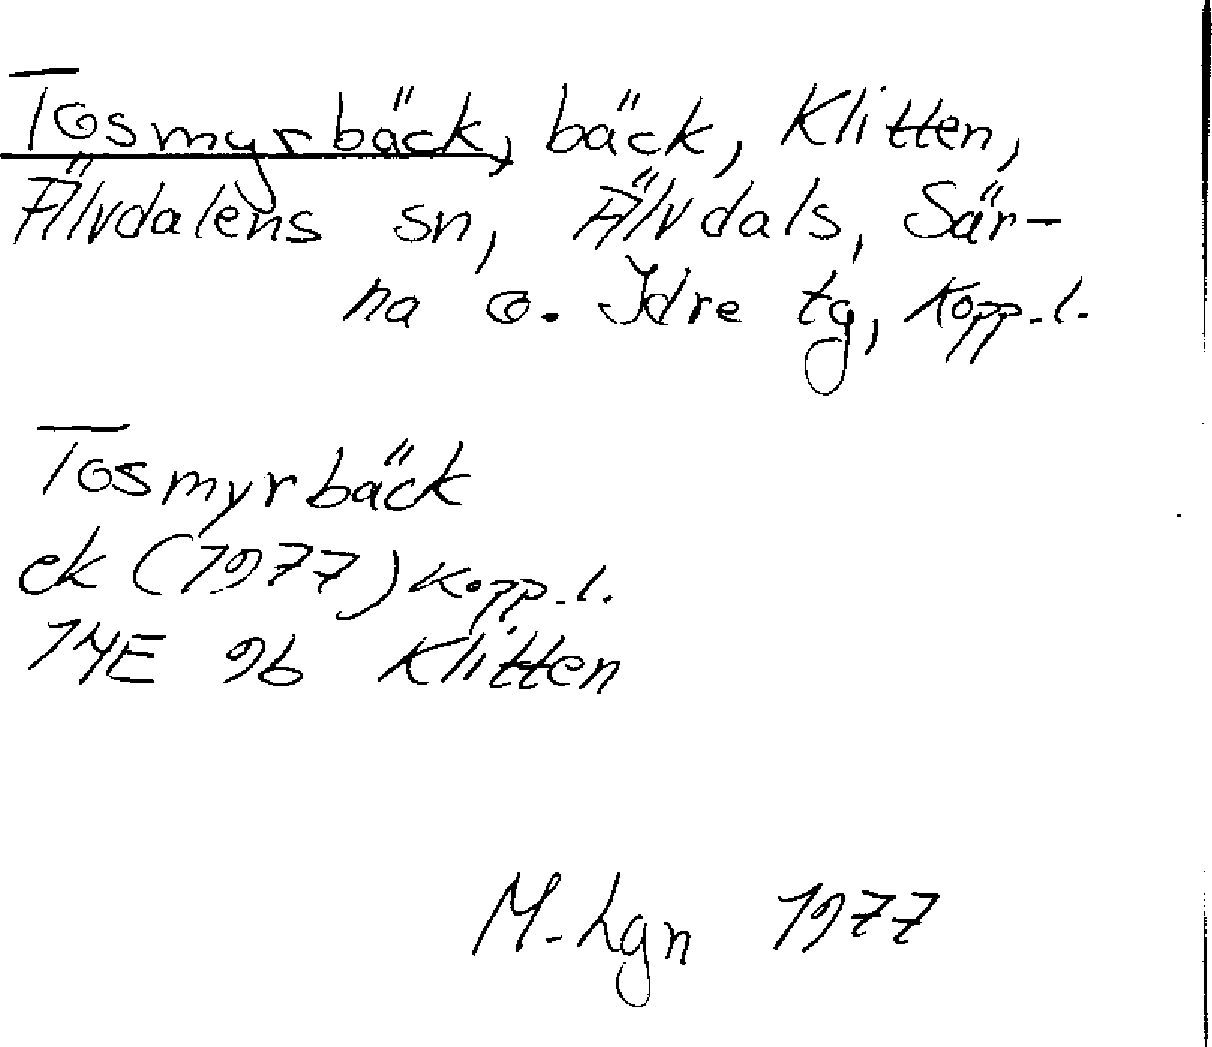 Tosmyrbäck, bäck, Klitten,
Älvdalens sn, Älvdals, Sär-
na o. Idre tg, Kopp. l.
Tosmyrbäck
ek (1977) Kopp. l.
14E 9b Klitten
M. Lgn 1977